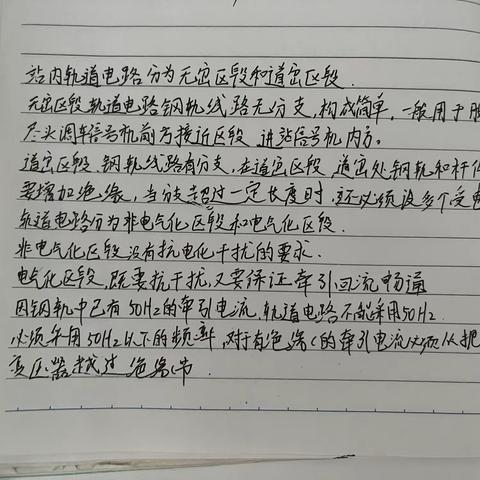 站内轨道电路分为无岔区段和道岔区段.
无岔区段轨道电路钢轨线路无分支,构成简单,一般用于股
尽头调车信号机前方接近区段 进站信号机内方.
道岔区段,钢轨线路有分支,在道岔区段 道岔处钢轨和杆件
要增加绝缘,当分支超过一定长度时,还必须设多个受电
轨道电路分为非电气化区段和电气化区段.
非电气化区段没有抗电化干扰的要求.
电气化区段,既要抗干扰,又要保证牵引回流畅通
因钢轨中已有50Hz的牵引电流,轨道电路不能采用50Hz.
必须采用50Hz以下的频率,对于有绝缘的牵引电流必须从扼
变压器越过 绝缘节